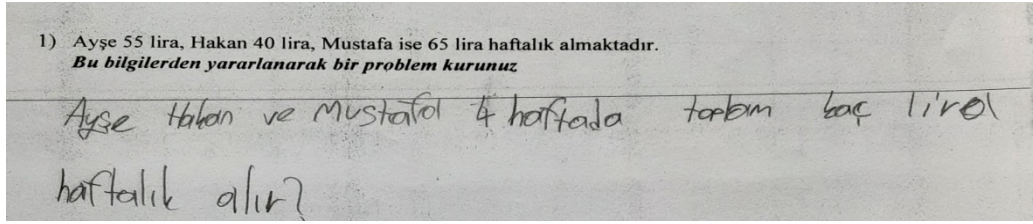 1) Ayşe 55 lira, Hakan 40 lira, Mustafa ise 65 lira haftalık almaktadır.
Bu bilgilerden yararlanarak bir problem kurunuz
Ayşe Hakan ve Mustafa 4 haftada toplam kaç lira
haftalık alır?